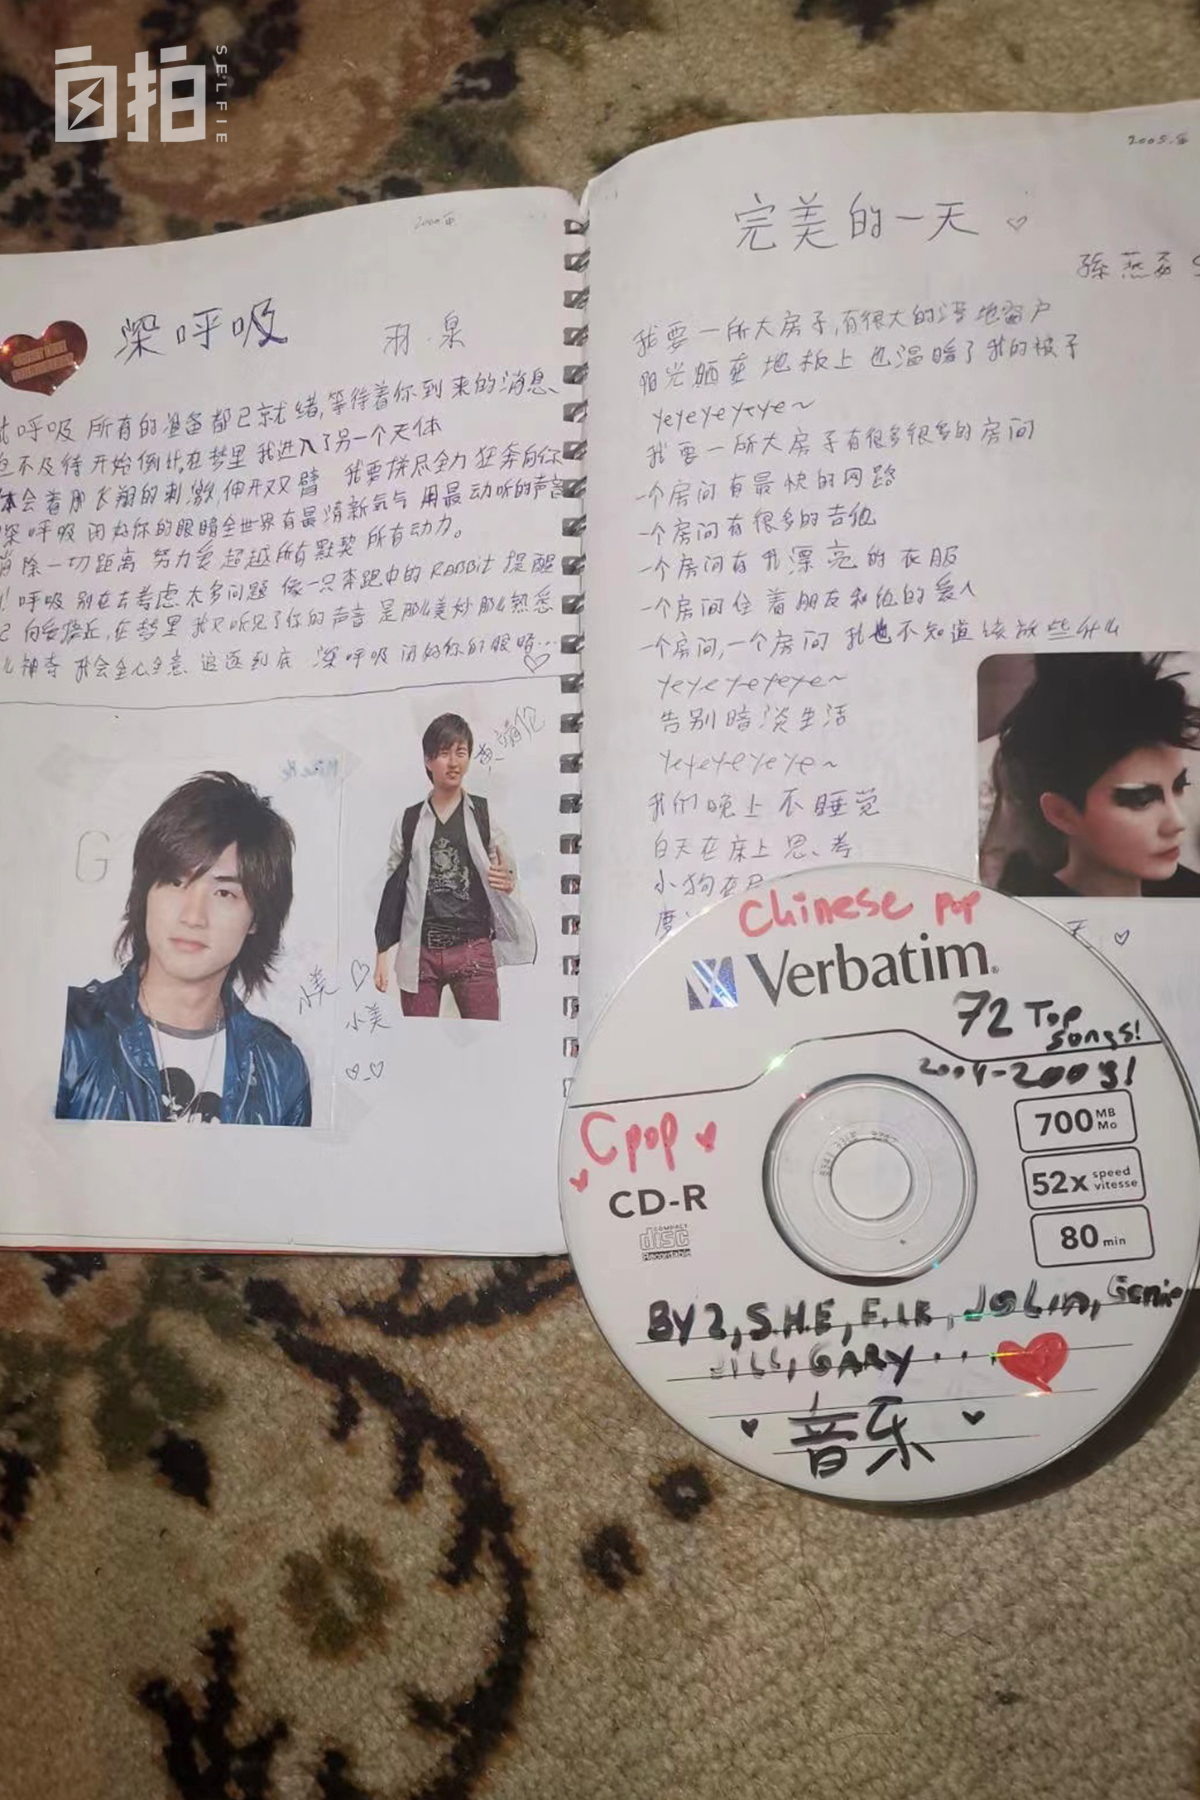 自拍
SELFIE
深呼吸
羽·泉
呼吸 所有的准备都已就绪,等待着你到来的消息、
迫不及待开始倒计,在梦里 我进入了另一个天体
体会着那飞翔的刺激,伸开双臂 我要拼尽全力 狂奔向你
深呼吸 闭好你的眼睛全世界有最清新氧气 用最动听的声音
消除一切距离 努力爱 超越所有默契 所有动力。
呼吸 别在去考虑太多问题 像一只奔跑中的RABBit 提醒
向爱接近,在梦里 我又听见了你的声音 是那么美妙那么熟悉
么神奇 我会全心全意 追逐到底 深呼吸 闭好你的眼睛…
G
小美
小美
2005.
完美的一天
孫燕姿
我要一所大房子,有很大的落地窗户
阳光晒在地板上 也温暖了我的被子
Yeyeyeyeye~
我要一所大房子有很多很多的房间
一个房间有最快的网路
一个房间有很多的吉他
一个房间有我漂亮的衣服
一个房间住着朋友和他的爱人
一个房间,一个房间 我也不知道该放些什么
Yeyeyeyeye~
告别暗淡生活
Yeyeyeyeye~
我们晚上不睡觉
白天在床上思考
小狗在
Chinese pop
Verbatim
72 Top
songs!
2004-2009!
Cpop
CD-R
COMPACT
disc
Recordable
700 MB
Mo
52x speed
vitesse
80 min
BY2, S.H.E, F.I.R, JOLIN, Genie
JILL, GARY...
音乐